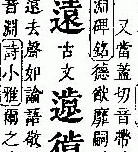 又當蓋切音帶
淵碑銘德猷靡嗣
遠古文
遠去聲如論語敬
音淵詩小雅爾之